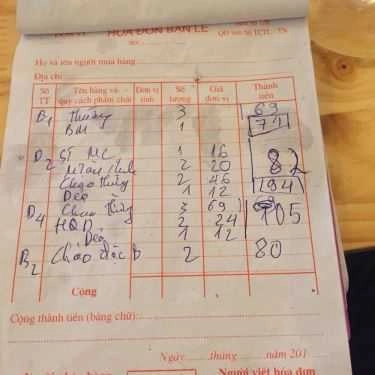 HÓA ĐƠN BÁN LẺ
SỐ:
Họ và tên người mua hàng
Địa chỉ
Số TT Tên hàng và quy cách phẩm chất Đơn vị tính Số lượng Giá đơn vị Thành tiền
B1 Thường 3 69
BM 1 79
D2 1 16 82
2 20
Cháo thường 2 46 94
Dẻo 1 12
D4 Cháo thường 3 69 105
HQD 2 24
Dẻo 1 12
B2 Cháo đặc b 2 80
Cộng
Cộng thành tiền (bằng chữ):
Ngày tháng năm 201
Người viết hóa đơn